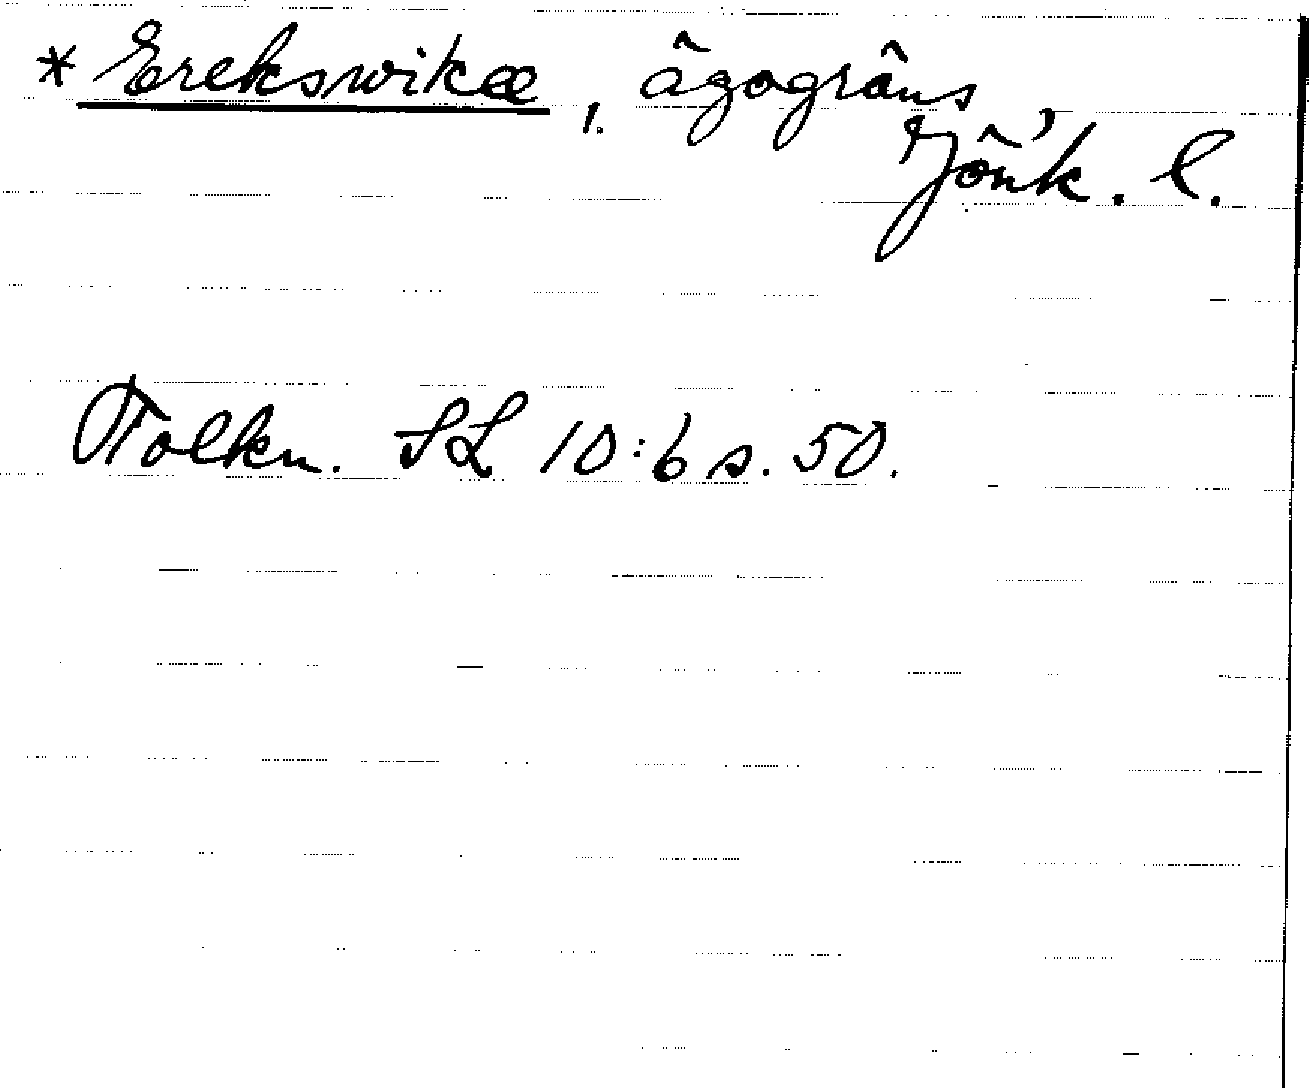 * Erekswikæ, 1. ägogräns,
Jönk. l.
Folkn. SL 10:6 s. 50.